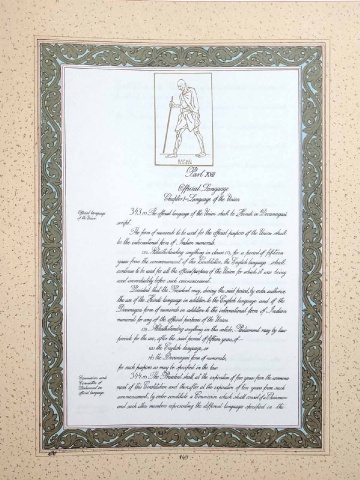 Part XVII
Official Language
Chapter I.-Language of the Union
Official language
of the Union.
343. (1) The official language of the Union shall be Hindi in Devanagari
script.
The form of numerals to be used for the official purposes of the Union shall
be the international form of Indian numerals.
(2) Notwithstanding anything in clause (1), for a period of fifteen
years from the commencement of this Constitution, the English language shall
continue to be used for all the official purposes of the Union for which it was being
used immediately before such commencement:
Provided that the President may, during the said period, by order authorise
the use of the Hindi language in addition to the English language and of the
Devanagari form of numerals in addition to the international form of Indian
numerals for any of the official purposes of the Union.
(3) Notwithstanding anything in this article, Parliament may by law
provide for the use, after the said period of fifteen years, of—
(a) the English language, or
(b) the Devanagari form of numerals,
for such purposes as may be specified in the law.
Commission and
Committee of
Parliament on
official language.
344. (1) The President shall, at the expiration of five years from the commence-
ment of this Constitution and thereafter at the expiration of ten years from such
commencement, by order constitute a Commission which shall consist of a Chairman
and such other members representing the different languages specified in the